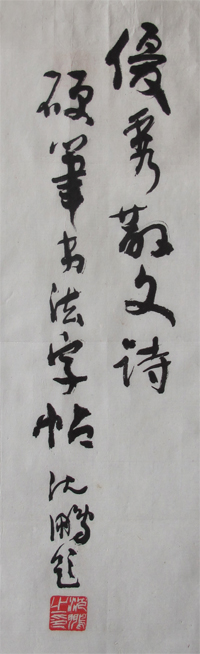 優秀散文诗
硬筆书法字帖
沈鵬题